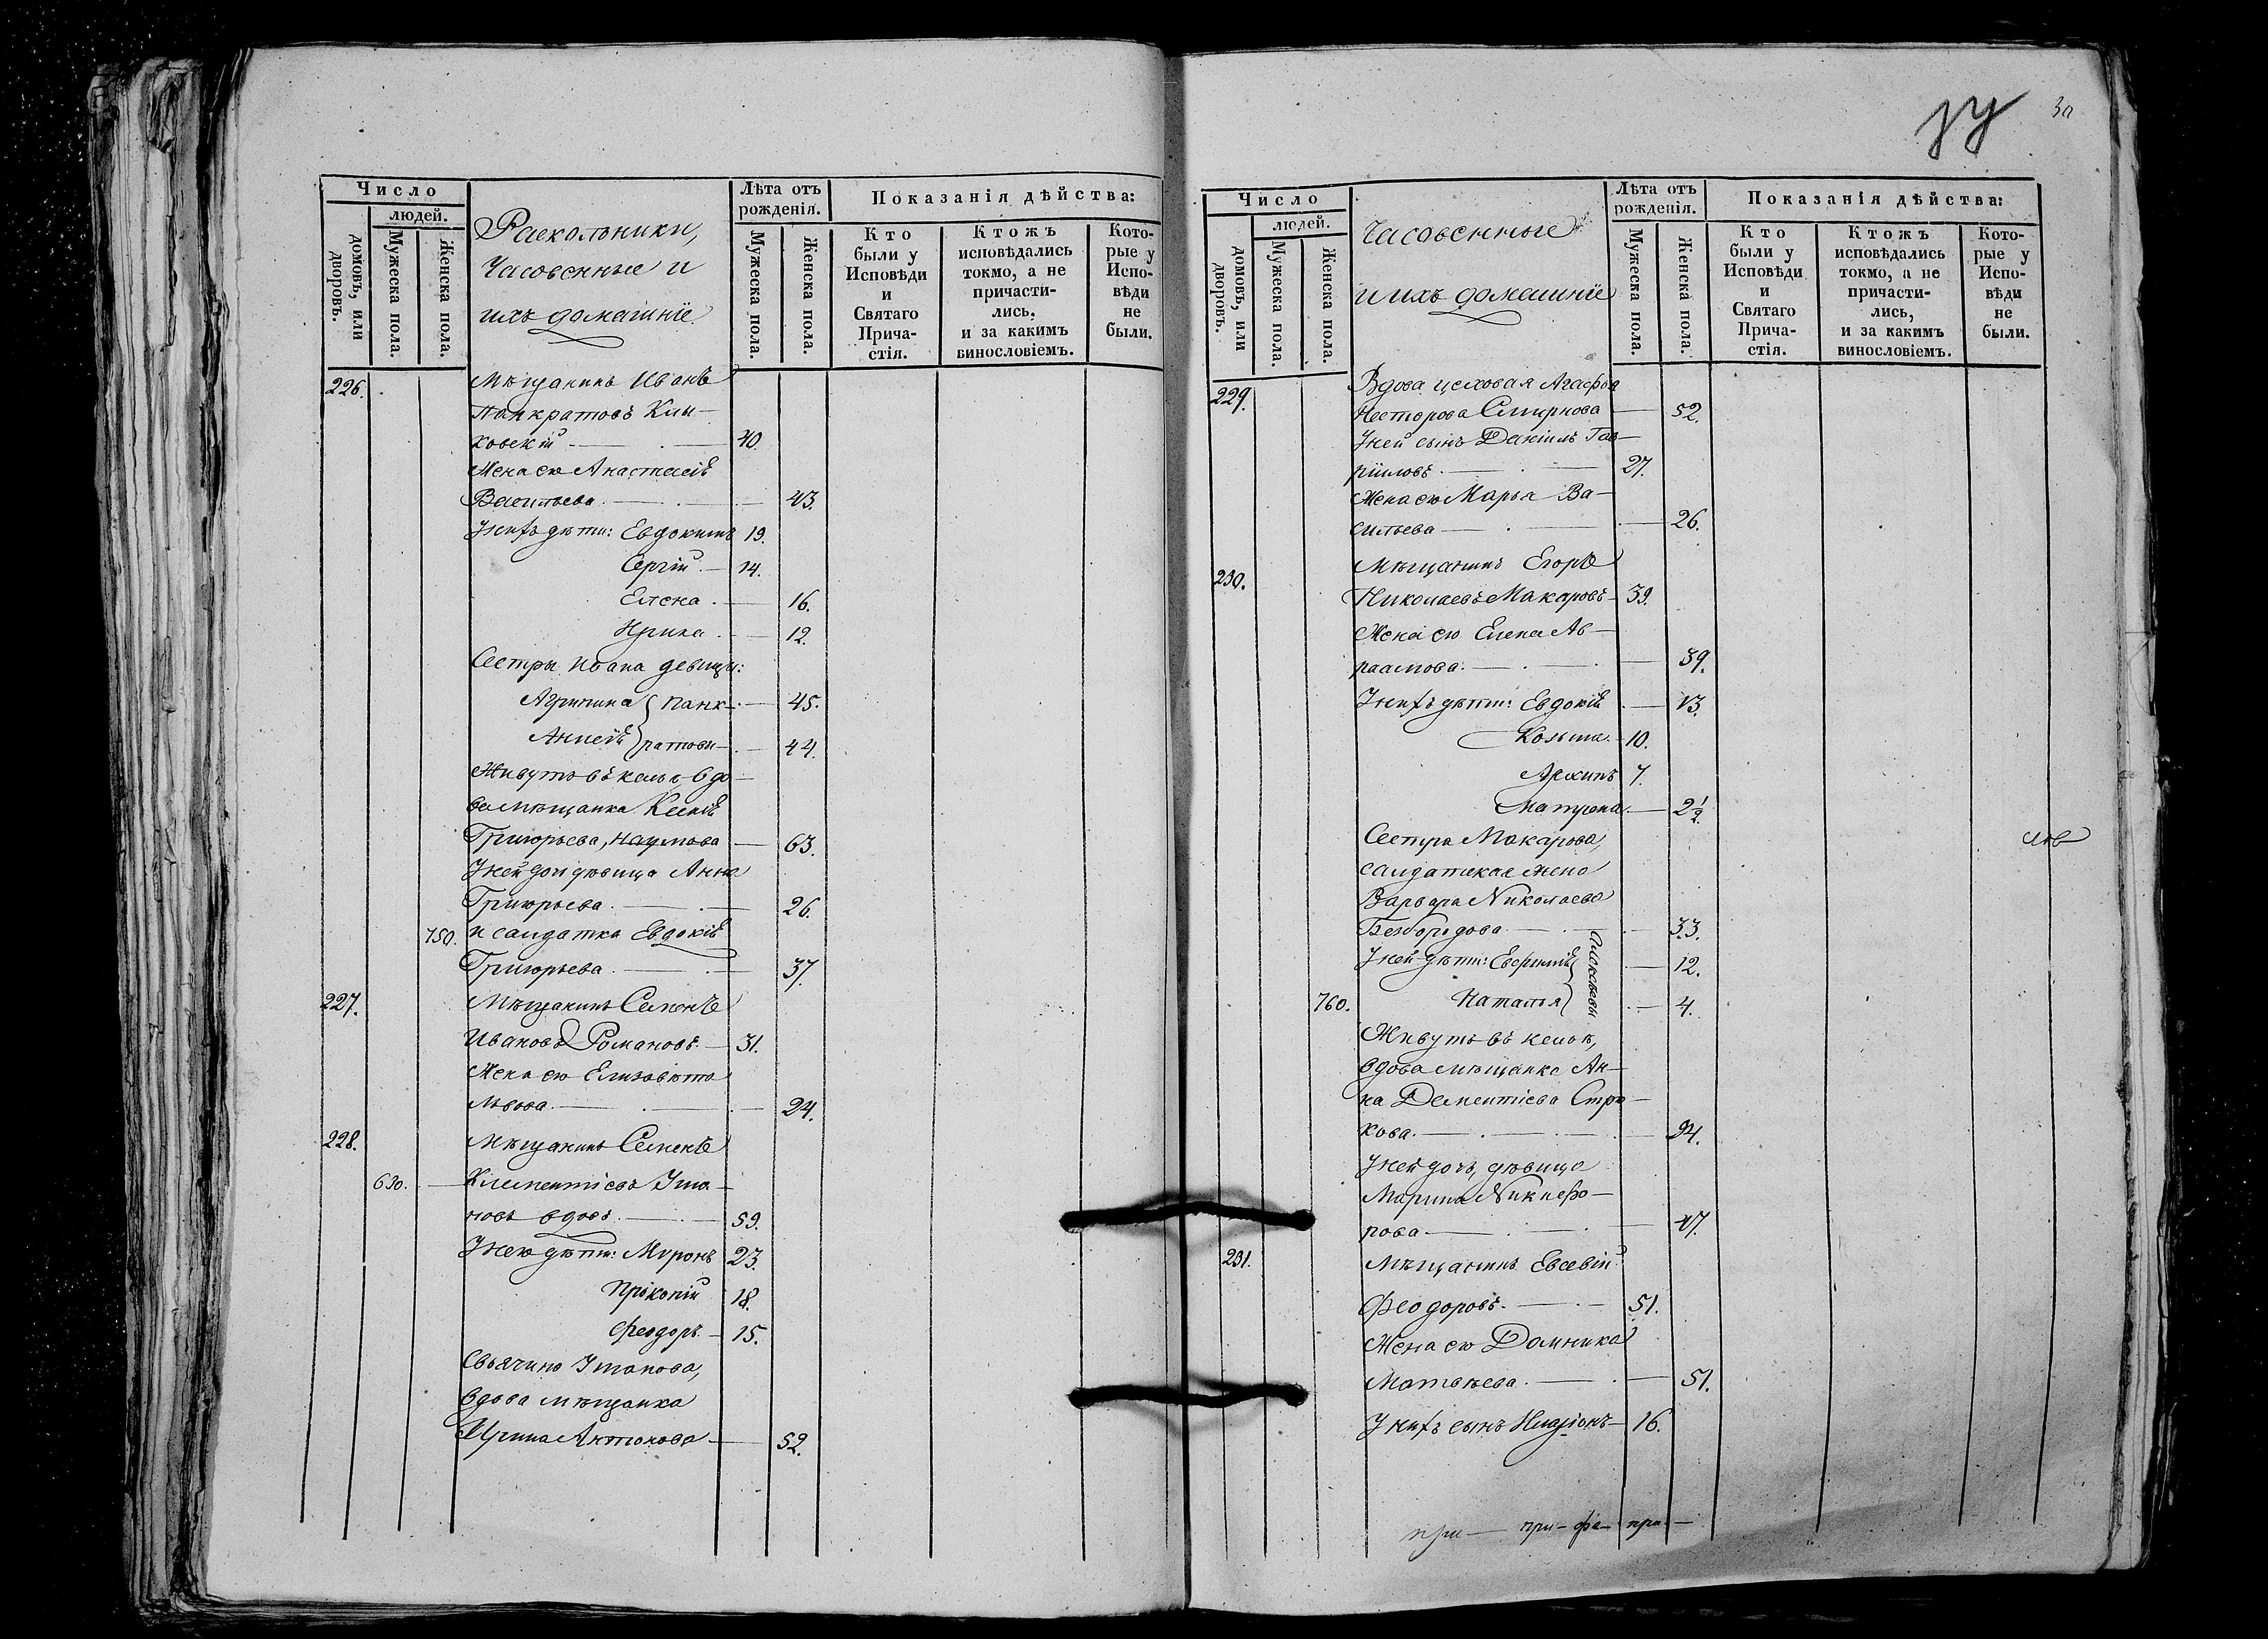 Число
людей.
домовъ, или дворовъ.
Мужеска пола.
Женска пола.
Раскольники,
Часовенные и
ихъ домашнїе
Лѣта отъ рожденія.
Мужеска пола.
Женска пола.
Показанія дѣйства:
Кто были у Исповѣди и Святаго Прича-стія.
Ктожъ исповѣдались токмо, а не причасти-лись, и за какимъ винословіемъ.
Кото-рые у Испо-вѣди не были.
226. Мѣщанинъ Иванъ
Панкратовъ Клы-
ковскій 40.
Жена его Анастасія
Васильева 43.
У нихъ дѣти: Евдокимъ 19.
Сергій 14.
Елена 16.
Ирина 12.
Сестры Ивана девицы:
Агрипина Панк- 45.
Анисія ратовы 44.
Живутъ въ кельѣ вдо-
ва мѣщанка Ксенія
Григорьева, Наумова 63.
У ней дочь дѣвица Анна
Григорьева 26.
750. и салдатка Евдокія
Григорьева 37.
227. Мѣщанинъ Семенъ
Ивановъ Романовъ 31.
Жена его Елизавета
Львова 24.
228. Мѣщанинъ Семенъ
630. Клементіевъ Ута-
новъ вдовъ 59.
У него дѣти: Мѵронъ 23.
Прокопій 18.
Феодоръ 15.
Свьячина Утапова,
вдова мѣщанка
Ирина Антонова 52.
30
Число
людей.
домовъ, или дворовъ.
Мужеска пола.
Женска пола.
Часовенные
и ихъ домашнїе
Лѣта отъ рожденія.
Мужеска пола.
Женска пола.
Показанія дѣйства:
Кто были у Исповѣди и Святаго Прича-стія.
Ктожъ исповѣдались токмо, а не причасти-лись, и за какимъ винословіемъ.
Кото-рые у Испо-вѣди не были.
229. Вдова цеховая Агафья
Несторова Смирнова 52.
У ней сынъ Даніилъ Гав-
рииловъ 27.
Жена его Марья Ва-
сильева 26.
230. Мѣщанинъ Егоръ
Николаевъ Макаровъ 39.
Жена его Елена Ав-
раамова 39.
У нихъ дѣти: Евдокія 13.
Козьма 10.
Архипъ 7.
Матрона 2 1/2.
Сестра Макарова,
салдатская жена
Варвара Николаева
Безбородова 33.
У ней дѣти: Евфимія 12.
760. Наталья 4.
Алексѣевы
Живутъ въ кельѣ,
вдова мѣщанка Ан-
на Дементіева Стра-
кова 94.
У ней дочь, дѣвица
Марина Никифо-
рова 47.
231. Мѣщанинъ Евсевій
Феодоровъ 51.
Жена его Домника
Матвѣева 51.
У нихъ сынъ Иларіонъ 16.
при- при-фе- при-